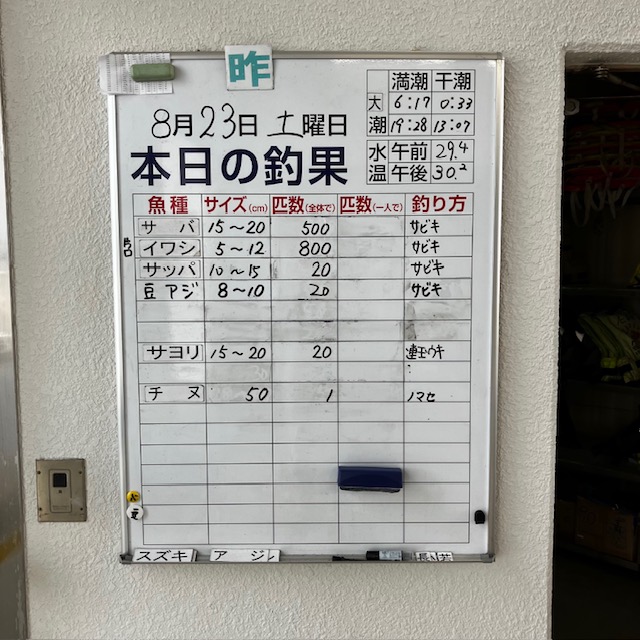 昨
8月23日 土曜日
本日の釣果
満潮 干潮
大潮 6:17 0:33
19:28 13:07
水温 午前 29.4
午後 30.2
魚種 サイズ(cm) 匹数(全体で) 匹数(一人で) 釣り方
サバ 15~20 500 サビキ
イワシ 5~12 800 サビキ
サッパ 10~15 20 サビキ
豆アジ 8~10 20 サビキ
サヨリ 15~20 20 連玉ウキ
チヌ 50 1 ノマセ
スズキ アジ